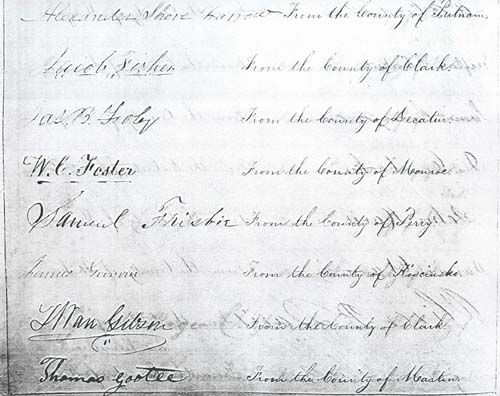 Alexander Shore Farrow From the County of Putnam.
Jacob Fisher From the County of Clark.
Jas. B. Foley From the County of Decatur.
W. C. Foster From the County of Monroe.
Samuel Frisbie From the County of Perry.
From the County of Kosciusko.
Gibson From the County of Clark
Thomas Gootee From the County of Martin.